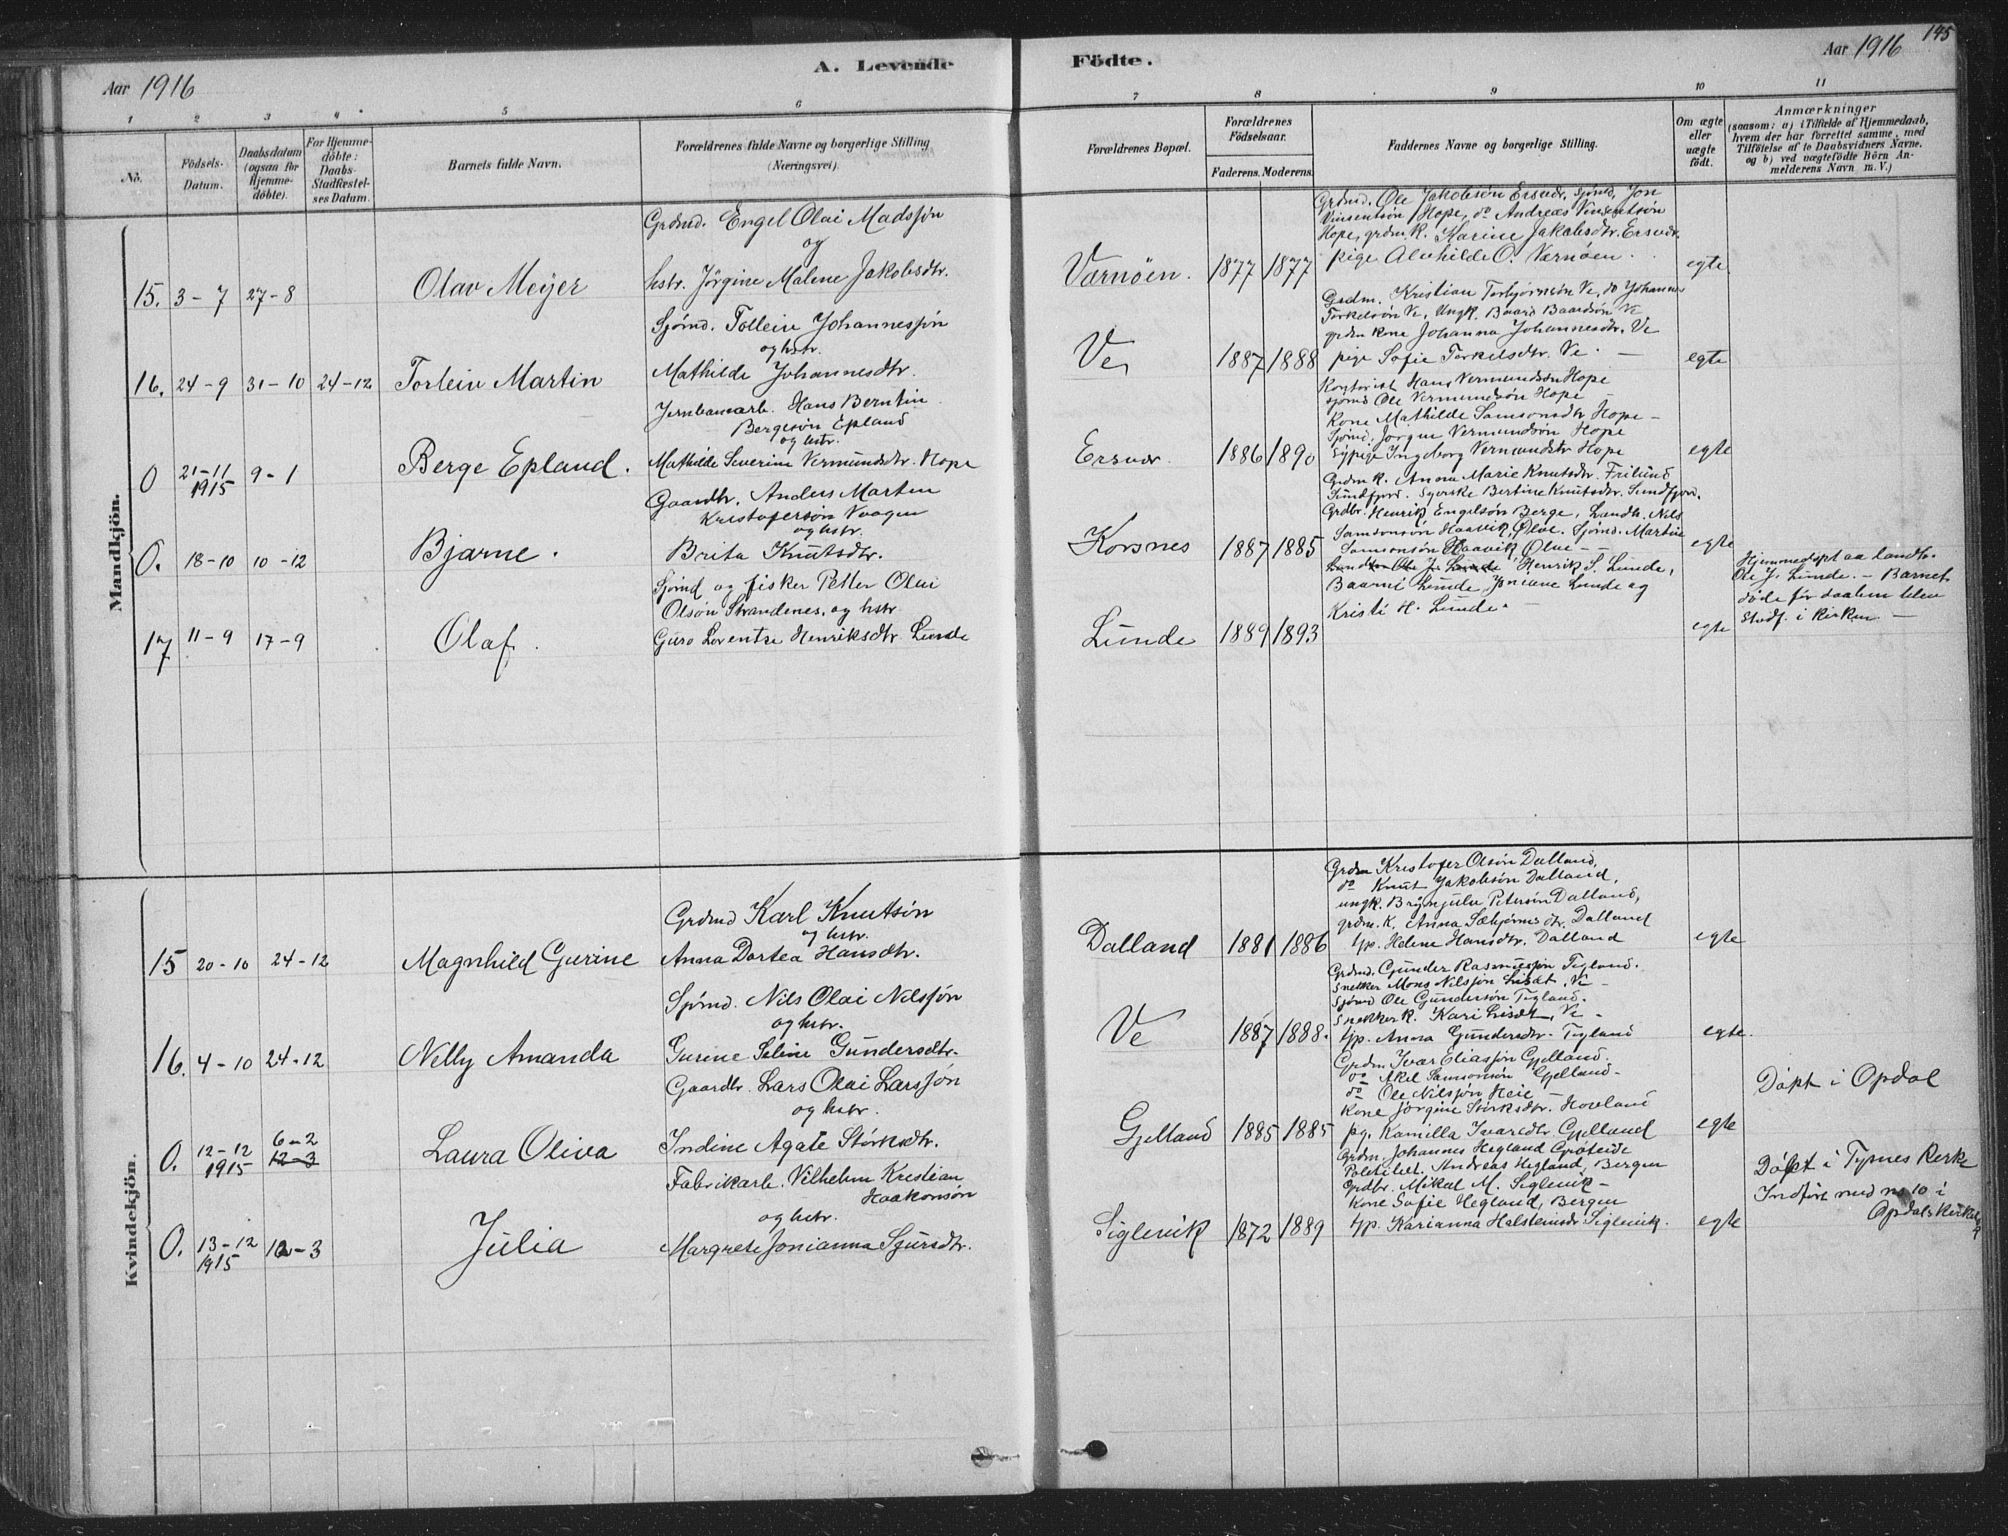 145
Aar 1916
A. Levende
Födte.
Aar 1916
1 2 3 4 5 6 7 8 9 10 11
No.
Födsels-Datum.
Daabsdatum (ogsaa for Hjemmedöbte).
For Hjemmedöbte: Daabs-Stadfæstelses Datum.
Barnets fulde Navn.
Forældrenes fulde Navne og borgerlige Stilling
(Næringsvei).
Forældrenes Bopæl.
Forældrenes Födselsaar.
Faderens. Moderens.
Faddernes Navne og borgerlige Stilling.
Om ægte eller uægte födt.
Anmærkninger
(saasom: a) i Tilfælde af Hjemmedaab,
hvem der har forrettet samme, med
Tilföielse af to Daabsvidners Navne.
og b) ved uægtefödte Börn Anmelderens Navn m. V.)
Mandkjön.
15. 3-7 27-8
Olav Meijer
Grdmd. Engel Olai Madssøn
og
hstr. Jörgine Malene Jakobsdtr.
Værnöen. 1877 1877
Grdmd. Ole Jakobsön Ersvær, Sjömd, Jon
Vinsentsön Hope, do Andreas Vinsentsön
Hope, grdm k. Karine Jakobsdtr. Ersvær
pige Alvhilde O. Værnöen.
egte
16. 24-9 31-10 24-12
Torleiv Martin
Sjömd. Tolleiv Johannessön
og hstr.
Mathilde Johannesdtr.
Ve 1887 1888
Grdm. Kristian Torbjörnsön Ve, do Johannes
Torkelsön Ve, Ungk. Baard Baardsön Ve
grdm kone Johanna Johannesdtr. Ve
pige Sofie Torkelsdtr. Ve.
egte
0 21-11 1915 9-1
Berge Epland.
Jernbanearb. Hans Berntin
Bergesön Epland
og hstr.
Mathilde Severine Vermundsdtr. Hope
Ersvær 1886 1890
Kontorist Hans Vermundsön Hope
sjömd Ole Vermundsön Hope
Kone Mathilde Samsonsdtr Hope
Sjömd, Jörgen Vermundsön Hope
Sypige Ingeborg Vermundsdtr Hope
egte
0. 18-10 10-12
Bjarne.
Gaardbr. Anders Martin
Kristofersön Vaagen
og hstr.
Brita Knutsdtr.
Korsnes 1887 1885
Grdm k. Anna Marie Knutsdtr. Frilund
Sundfjord. Syerske Bertine Knutsdtr. Sundfjord.
Grdbr. Henrik Engelsön Berge, Landh. Nils
Samsonsön Haavik, Ølve. Sjömd. Martin
Samsonsön Haavik, Ølve
egte
17 11-9 17-9
Olaf.
Sjömd og fisker Petter Olai
Olsön Strandenes. og hstr
Guro Lorentse Henriksdtr Lunde
Lunde 1889 1893
Landhan Ole J. Lunde Henrik S. Lunde,
Baarni Lunde, Joniane Lunde og
Kristi H. Lunde.
egte
Hjemmedöpt aa landh.
Ole J. Lunde. - Barnet
döde för daaben blev
stadf. i kirken
Kvindekjön.
15 20-10 24-12
Magnhild Gurine
Grdmd Karl Knutsön
og hstr.
Anna Dortea Hansdtr.
Dalland 1881 1886
Grdm Kristofer Olsön Dalland,
do Knut Jakobsön Dalland,
ungk. Brynjulv Petersön Dalland,
grdm. k. Anna Sæbjörnsdtr. Dalland
tjp. Helene Hansdtr. Dalland
egte
16. 4-10 24-12
Nelly Amanda
Sjömd. Nils Olai Nilssön
og hstr.
Gurine Seline Gundersdtr.
Ve 1887 1888.
Grdmd. Gunder Rasmussön Tegland.
Snekker Mons Nilssön Ve
Sjömd Ole Gundersön Tegland.
Snekker k. Kari Ve
tjp. Anna Gundersdtr. Tegland
egte.
0. 12-12 1915 6-2 12-3
Laura Oliva
Gaardbr. Lars Olai Larssön
og hstr.
Indine Agate Störksdtr.
Gjelland 1885 1885
Grdm Ivar Eliassön Gjelland.
do Aksel Samsonsön Gjelland
do Ole Nilssön Heie
Kone Jörgine Störksdtr. Hovland
pg. Kamilla Ivarsdtr Gjelland
egte
Döpt i Opdal
0. 13-12 1915 12-3
Julia
Fabrikarb. Vilhelm Kristian
Haakonsön
og hstr.
Margrete Jonianna Sjursdtr.
Siglevik 1872 1889
Grdm. Johannes Hegland
Politibet. Andreas Hegland, Bergen
Grdbr. Mikal M. Siglevik
Kone Sofie Hegland, Bergen
tjp. Karianna Halsteinsdr Siglevik.
egte
Döpt i Tysnes Kirke
Indført med no 10 i
Opdals Kirkebog